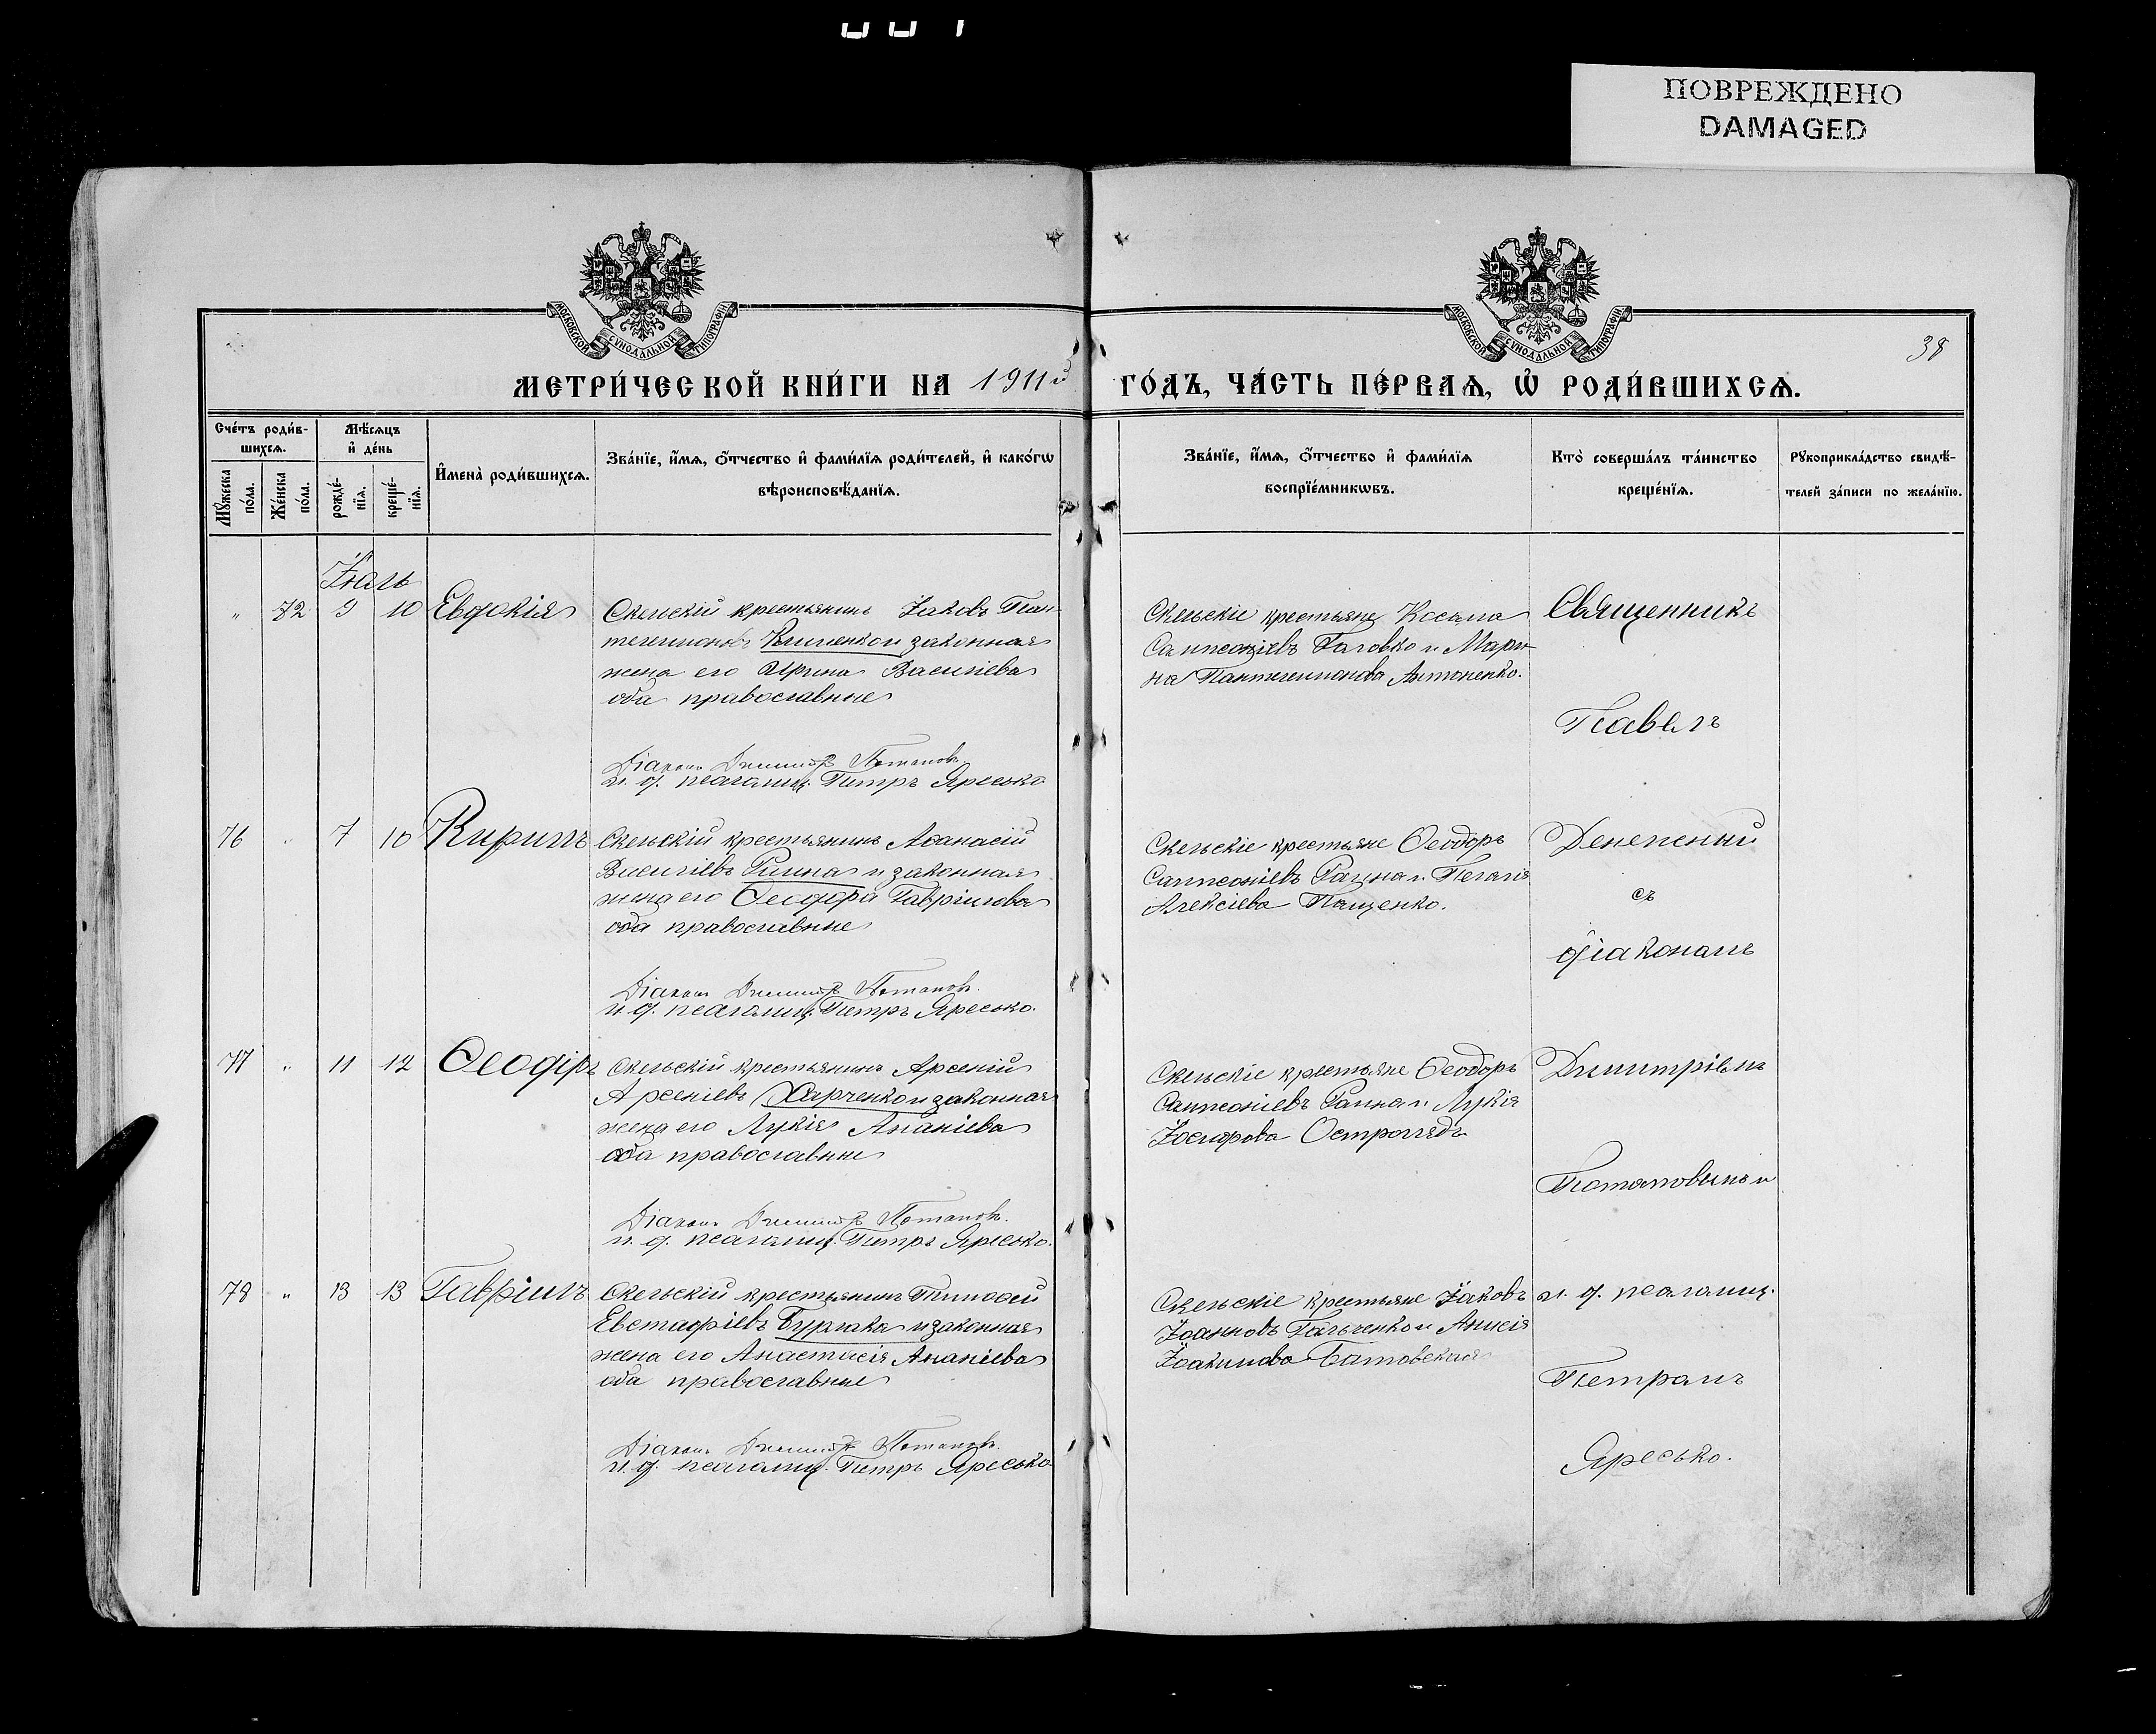 ПОВРЕЖДЕНО
DAMAGED
МОСКОВСКОЙ СУНОДАЛЬНОЙ ТИПОГРАФІИ
МОСКОВСКОЙ СУНОДАЛЬНОЙ ТИПОГРАФІИ
38
МЕТРИ́ЧЕСКОЙ КНИ́ГИ НА 1911й ГО́ДЪ, ЧА́СТЬ ПЕ́РВАѦ, Ѡ҆ РОДИ́ВШИХСѦ.
Сче́тъ роди́в-
шихсѧ.
Мꙋ́жеска по́ла.
Же́нска по́ла.
Мѣ́сѧцъ
и҆ де́нь
рожде́-
нїѧ.
креще́-
нїѧ.
И҆мена̀ роди́вшихсѧ.
Зва́нїе, и҆́мѧ, ѻ҆́тчество и҆ фами́лїѧ роди́телей, и҆ како́гѡ
вѣроисповѣ́данїѧ.
Зва́нїе, и҆́мѧ, ѻ҆́тчество и҆ фами́лїѧ
воспрїе́мникѡвъ.
Кто̀ соверша́лъ та́инство
креще́нїѧ.
Рꙋкоприкла́дство свидѣ́-
телей за́писи по жела́нїю.
Іюль
" 72 9 10 Евдокія
Скельскій крестьянинъ Іаковъ Пан-
телеимоновъ Клименко и законная
жена его Ирина Василіева
оба православные
Діаконъ Димитрій Потаповъ.
и. д. псаломщ. Петръ Яресько
Скельскіе крестьяне Косма
Сампсоніевъ Головко и Мари-
на Пантелеимонова Антоненко.
Священникъ
Павелъ
76 " 7 10 Кирилъ
Скельскій крестьянинъ Аѳанасій
Василіевъ Гапна и законная
жена его Ѳеодора Гавріилова
оба православные
Діаконъ Димитрій Потаповъ.
и. д. псаломщ. Петръ Яресько.
Скельскіе крестьяне Ѳеодоръ
Сампсоніевъ Гапна и Пелагія
Алексіева Пащенко.
съ
діакономъ
77 " 11 12 Ѳеодоръ
Скельскій крестьянинъ Арсеній
Арсеніевъ Харченко и законная
жена его Лукія Ананіева
оба православные
Діаконъ Димитрій Потаповъ.
и. д. псаломщ. Петръ Яресько.
Скельскіе крестьяне Ѳеодоръ
Сампсоніевъ Гапна и Лукія
Іосифова Остроглядъ
Димитріемъ
Потаповымъ и
78 " 13 13 Гавріилъ
Скельскій крестьянинъ Тимоѳей
Евстафіевъ Бурлака и законная
жена его Анастасія Ананіева
оба православные
Діаконъ Димитрій Потаповъ.
и. д. псаломщ. Петръ Яресько
Скельскіе крестьяне Іаковъ
Іоанновъ Гальченко и Анисія
Іоакимова Батовская
и. д. псаломщ.
Петромъ
Яресько.